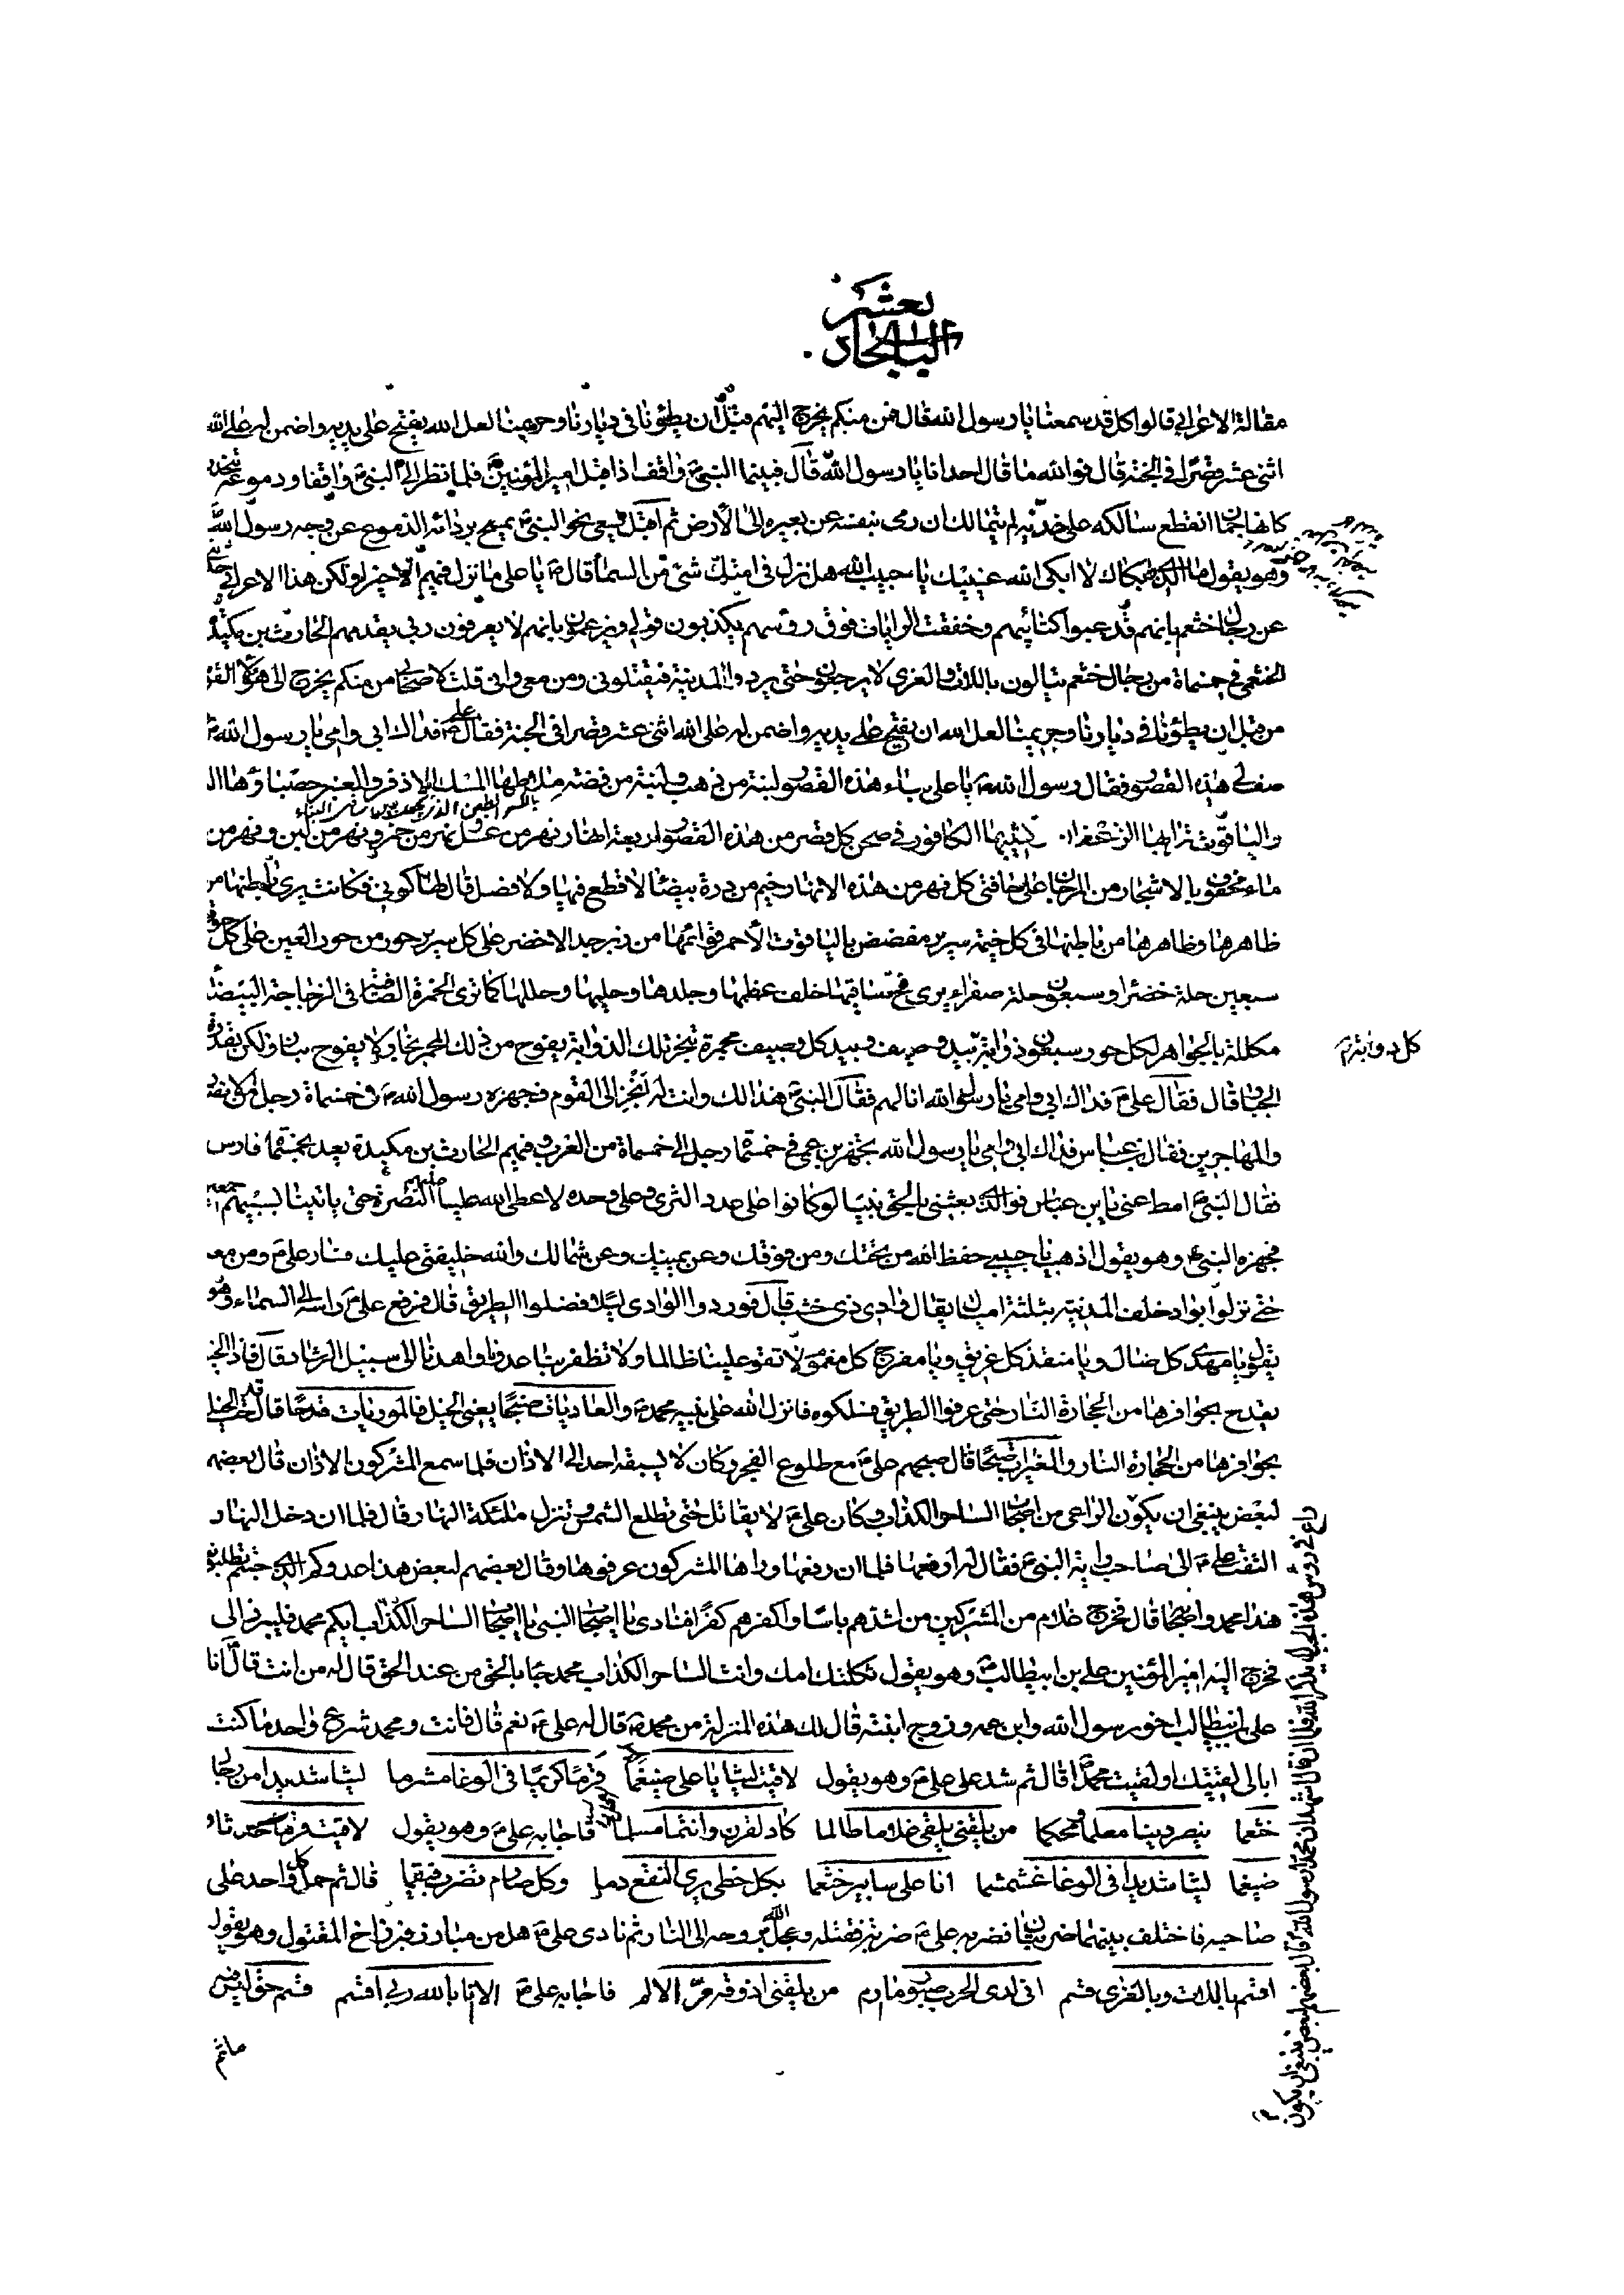 الباب الحادي عشر
مقالة الاعرابي قالوا كل قد سمعنا يا رسول الله قال فمن منكم يخرج اليهم قبل ان يطئونا في ديارنا وحريمنا لعل الله يفتح على يديه واضمن له على الله
اثنى عشر قصرا في الجنة قال فوالله ما قال احد انا يا رسول الله قال فبينما النبي واقف اذ اقبل امير المؤمنين فلما نظر الى النبي واقفا ودموعه تنحدر
كانها جمان انقطع سلكه على خديه لم يتمالك ان رمى بنفسه عن بعيره الى الارض ثم اقبل يسعى نحو النبي يمسح بردائه الدموع عن وجه رسول الله
وهو يقول ما الذي ابكاك لا ابكى الله عينيك يا حبيب الله هل نزل في امتك شئ من السماء قال يا علي ما نزل فيهم الا خير ولكن هذا الاعرابي
عن رجال خثعم بانهم قد عبوا كتائبهم وخفقت الرايات فوق رؤسهم يكذبون قولي ويزعمون بانهم لا يعرفون ربي يقدمهم الحارث بن مكيدة
الخثعمي في خمسماة من رجال خثعم يتالون باللات والعزى لا يرجعون حتى يردوا المدينة فيقتلوني ومن معي واني قلت لاصحابي من منكم يخرج الى هؤلاء القوم
من قبل ان يطئونا في ديارنا وحريمنا لعل الله ان يفتح على يديه واضمن له على الله اثنى عشر قصرا في الجنة فقال علي فداك ابي وامي يا رسول الله
صف لي هذه القصور فقال رسول الله يا علي بناء هذه القصور لبنة من ذهب ولبنة من فضة ملاطها المسك الاذفر والعنبر حصباؤها الد
والياقوت ترابها الزعفران كثيبها الكافور في صحن كل قصر من هذه القصور اربعة انهار نهر من عسل ونهر من خمر ونهر من لبن ونهر من
ماء محفوف بالاشجار من المرجان على حافتي كل نهر من هذه الانهار وخيم من درة بيضاء لا قطع فيها ولا فصل قال لها كوني فكانت يرى باطنها من
ظاهرها وظاهرها من باطنها في كل خيمة سرير مفضض بالياقوت الاحمر قوائمها من زبرجد الاخضر على كل سرير حور من حور العين على كل حور
سبعين حلة خضراء وسبعون حلة صفراء يرى مخ ساقيها خلف عظمها وجلدها وحليها وحللها كما ترى الخمرة الصافية في الزجاجة البيضاء
مكللة بالجواهر لكل حور سبعون ذوابة بيد وصيف وبيد كل وصيف مجمرة تبخر تلك الذوابة يفوح من ذلك المجمر بخار لا يفوح بنار ولكن بقدرة
كل ذوابة
الجبار قال فقال علي فداك ابي وامي يا رسول الله انا لهم فقال النبي هذا لك وانت له انجز الى القوم فجهزه رسول الله في خمسماة رجل من الانصار
والمهاجرين فقال ابن عباس فداك ابي وامي يا رسول الله تجهز ابن عمي في خمسماة رجل الى خمسماة من العرب وفيهم الحارث بن مكيدة يعد بخمسماة فارس
فقال النبي امط عني يا بن عباس فوالذي بعثني بالحق نبيا لو كانوا على عدد الثرى وعلي وحده لاعطى الله عليا عليهم النصرة حتى ياتينا بسبيهم اجمعين
فجهزه النبي وهو يقول اذهب يا حبيبي حفظ الله من تحتك ومن فوقك وعن يمينك وعن شمالك والله خليفتي عليك فسار علي ومن معه
حتى نزلوا بواد خلف المدينة بثلثة اميال يقال وادي ذي خشب قال فوردوا الوادي ليلا فضلوا الطريق قال فرفع علي راسه الى السماء وهو
يقول يا مهدي كل ضال ويا منقذ كل غريق ويا مفرج كل مغموم لا تقو علينا ظالما ولا تظفر بنا عدونا واهدنا الى سبيل الرشاد قال فاذا الخيل
يقدح بحوافرها من الحجارة النار حتى عرفوا الطريق فسلكوه فانزل الله على نبيه محمد والعاديات ضبحا يعني الخيل فالموريات قدحا قال قدحت الخيل
بحوافرها من الحجارة النار والمغيرات صبحا قال صبحهم علي مع طلوع الفجر وكان لا يسبقه احد الى الاذان فلما سمع المشركون الاذان قال بعضهم
لبعض ينبغي ان يكون الراعي من اصحاب الساحر الكذاب وكان علي لا يقاتل حتى تطلع الشمس وتنزل ملئكة النهار قال فلما ان دخل النهار
التفت علي الى صاحب راية النبي فقال له ارفعها فلما ان رفعها وراها المشركون عرفوها وقال بعضهم لبعض هذا عدوكم الذي جئتم تطلبونه
هذا محمد واصحابه قال فخرج غلام من المشركين من اشدهم باسا واكفرهم كفرا فنادى يا اصحاب النبي يا اصحاب الساحر الكذاب ايكم محمد فليبرز الي
فخرج اليه امير المؤمنين علي بن ابيطالب وهو يقول ثكلتك امك وانت الساحر الكذاب محمد جاء بالحق من عند الحق قال له من انت قال انا
علي بن ابيطالب اخو رسول الله وابن عمه وزوج ابنته قال لك هذه المنزلة من محمد قال له علي نعم قال فانت ومحمد شرع واحد ما كنت
ابالي لقيتك او لقيت محمدا قال ثم شد على علي وهو يقول لاقيت ليثا يا علي ضيغما قرما كريما في الوغا مشرما ليثا شديدا من رجال
خثعما ينصر دينا معلما ومحكما من يلقني يلقى غلاما طالما كاد لقرن وانثنا مسلما فاجابه علي وهو يقول لاقيت قرما حدثا و
ضيغما ليثا شديدا في الوغا غشمشما انا علي سابير خثعما بكل خطي يري النقع دما وكل صارم قال ثم حمل كل واحد على
صاحبه فاختلف بينهما ضربتان فضربه علي ضربة فقتله وعجل الله بروحه الى النار ثم نادى علي هل من مبارز فبرز اخ المقتول وهو يقول
اقسم باللات وبالعزى قسم اني لدى الحرب صبور ما ارم من يلقني اذوقه مر الالم فاجابه علي الا انا بالله ربي اقسم قسم حق ليس فيه
ماثم
راع في رؤس هذه الجبال يذكر الله فلما ان قال اشهد ان محمدا رسول الله قال بعضهم لبعض ينبغي ان يكون